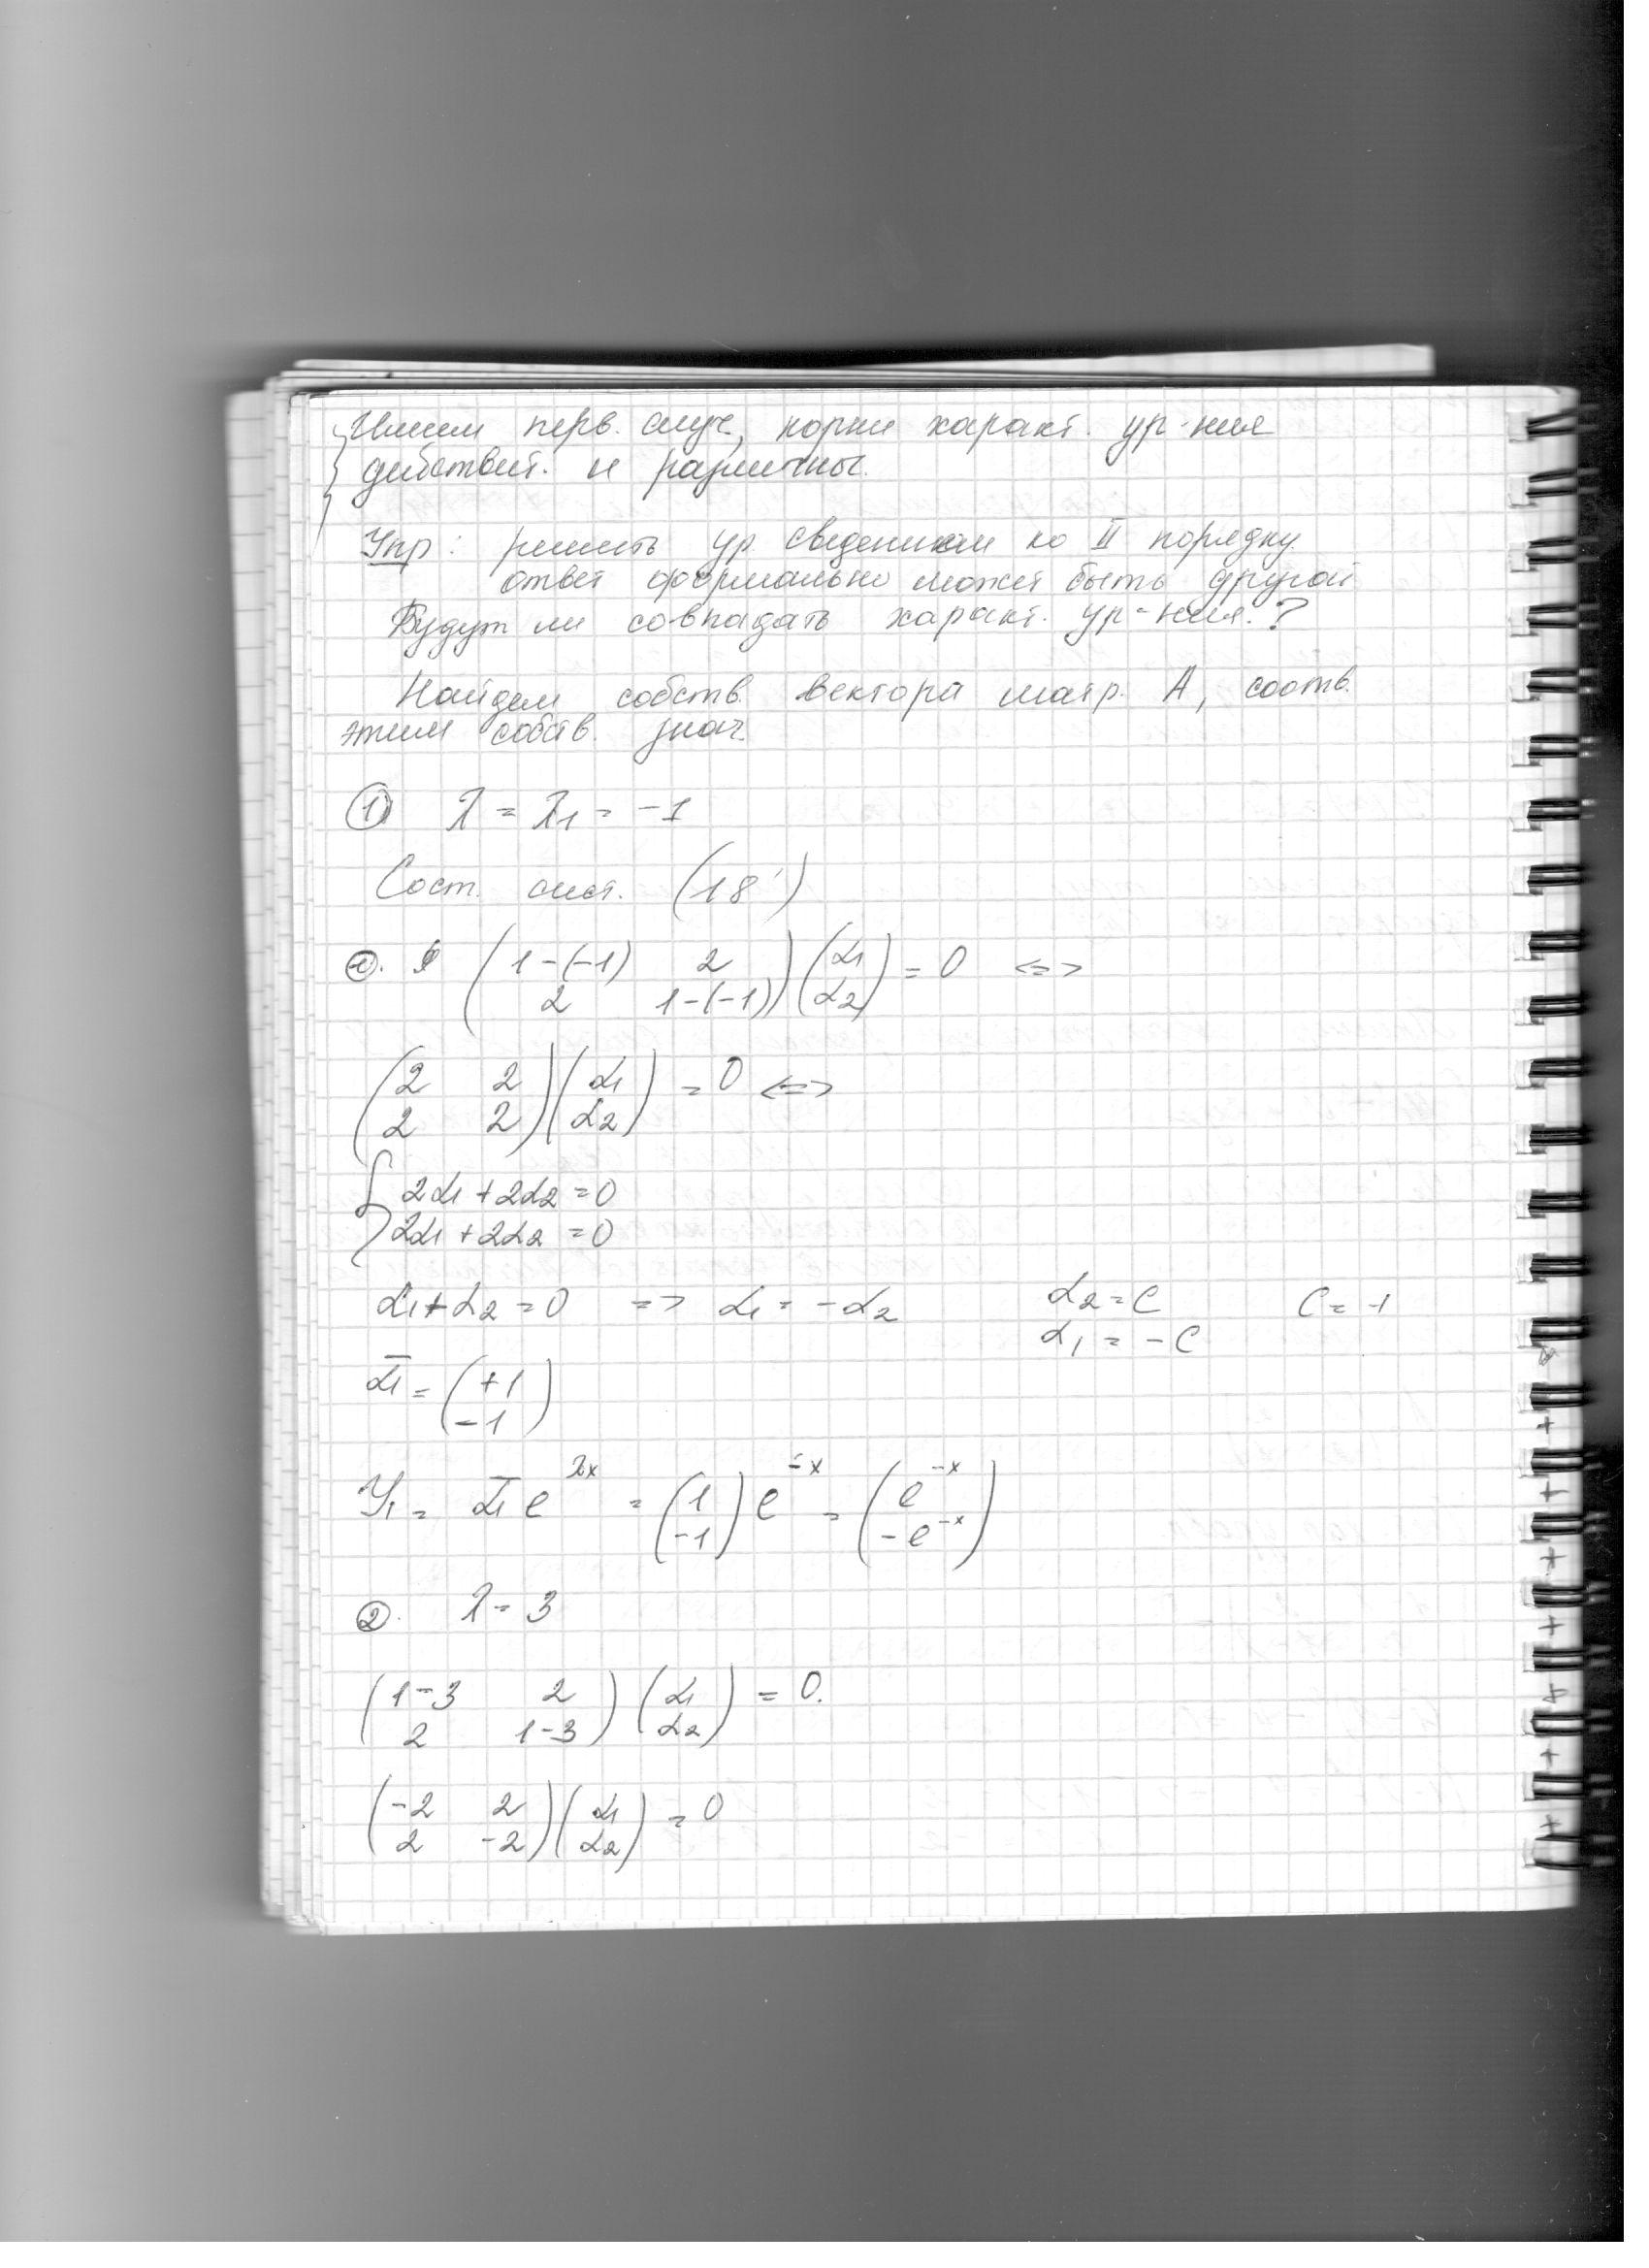 Имеем перв. случ., корни характ. ур-ния
действит. и различны.
Упр: решить ур. сведением ко II порядку
ответ формально может быть другой
Будут ли совпадать характ. ур-ния.?
Найдем собств. вектора матр. A, соотв.
этим собств. знач.
① λ = λ₁ = -1
Сост. сист. (18')
(1-(-1) 2) (α₁) = 0 <=>
(2 1-(-1)) (α₂)
(2 2) (α₁) = 0 <=>
(2 2) (α₂)
{ 2α₁ + 2α₂ = 0
2α₁ + 2α₂ = 0
α₁ + α₂ = 0 => α₁ = -α₂ α₂ = C C = -1
α₁ = -C
ᾱ₁ = (+1
-1)
Y₁ = ᾱ₁ e^λx = (1 -1) e^-x = (e^-x -e^-x)
②. λ = 3
(1-3 2) (α₁) = 0.
(2 1-3) (α₂)
(-2 2) (α₁) = 0
(2 -2) (α₂)